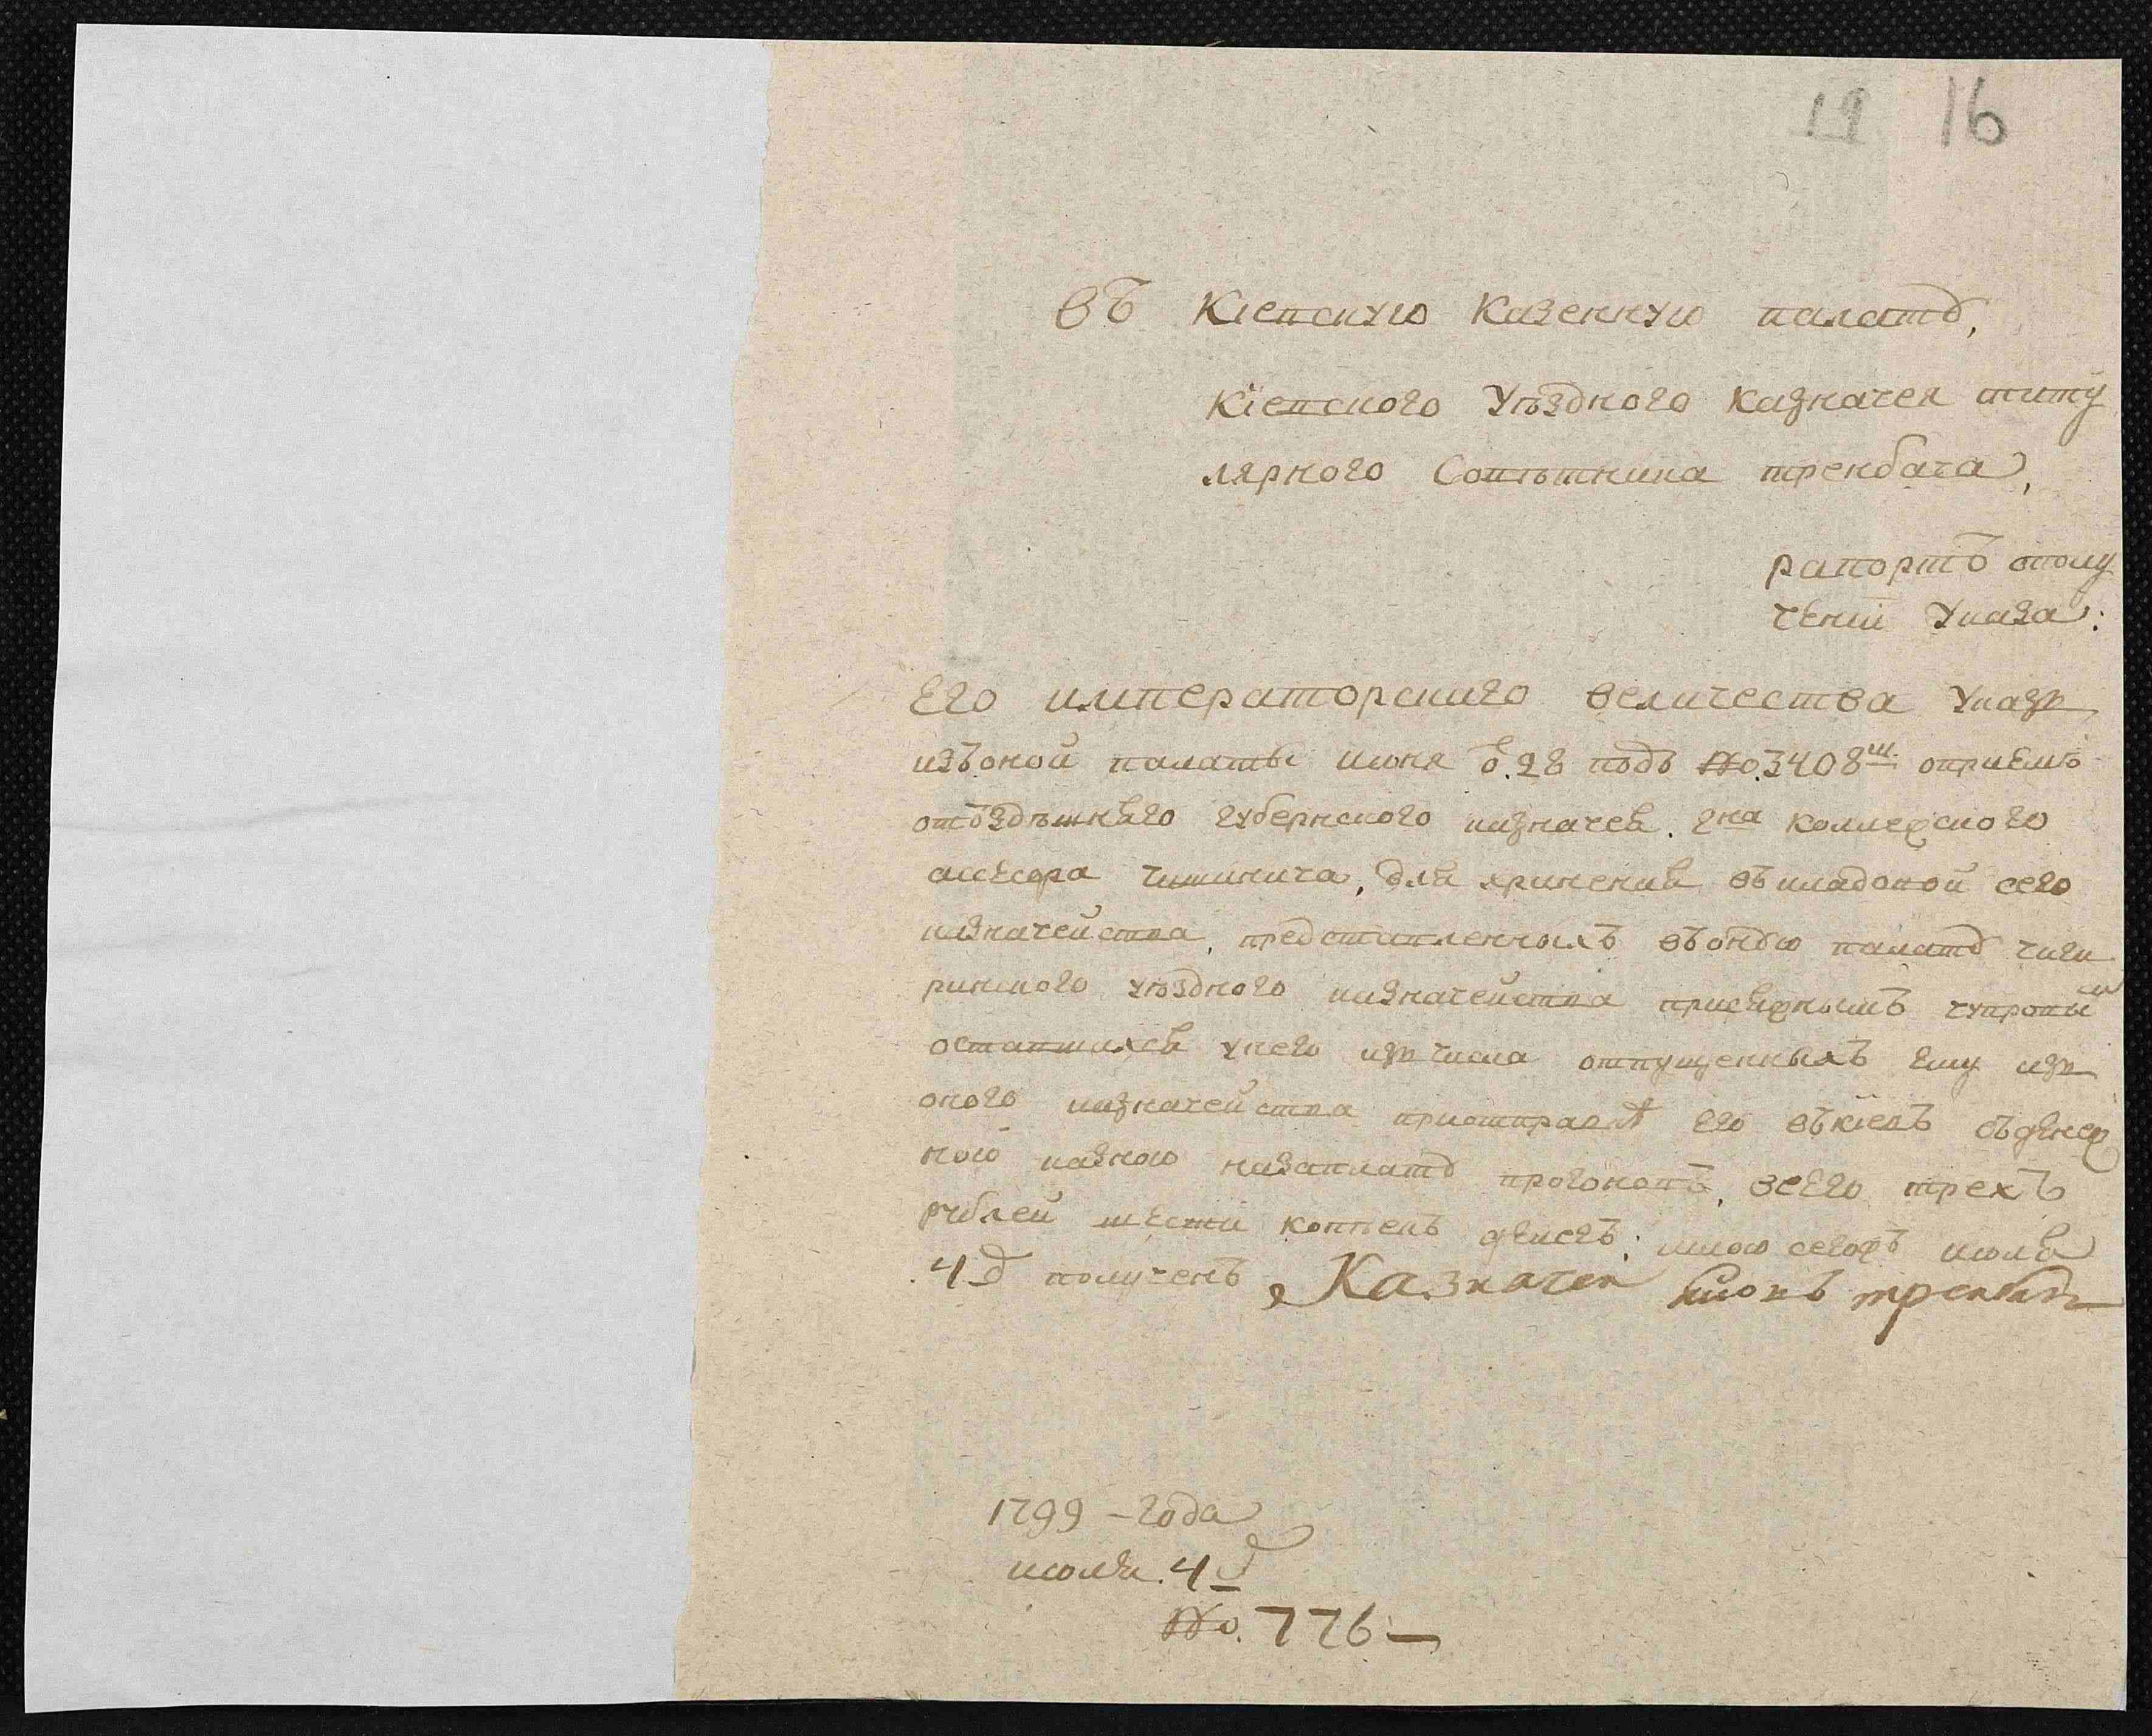 19 16
Въ Кіевскую Казенную палату,
Кіевского Уѣздного Казначея титу
лярного Совѣтника трембача,
рапортъ ополу
ченіи Указа:
Его императорского величества Указъ
изъоной палаты июня 28 подъ №о.3408м оприемѣ
отъздѣшнего губернского казначея. гна коллежского
ассесора , для хранения въкладовой сего
казначейства, представленныхъ въоную палату чиги
ринского уѣздного казначейства присяжнымъ чупровым
оставшихся унего изъ числа отпущенныхъ ему изъ
оного казначейства приотправѣ его вкіевъ съденеж
ною казною назаплату прогоновъ, всего трехъ
рублей шести копѣекъ денегъ; мною сегожъ июля
4д полученъ, Казначей трембачъ
1799 – года
июля. 4д
№о. 776 –